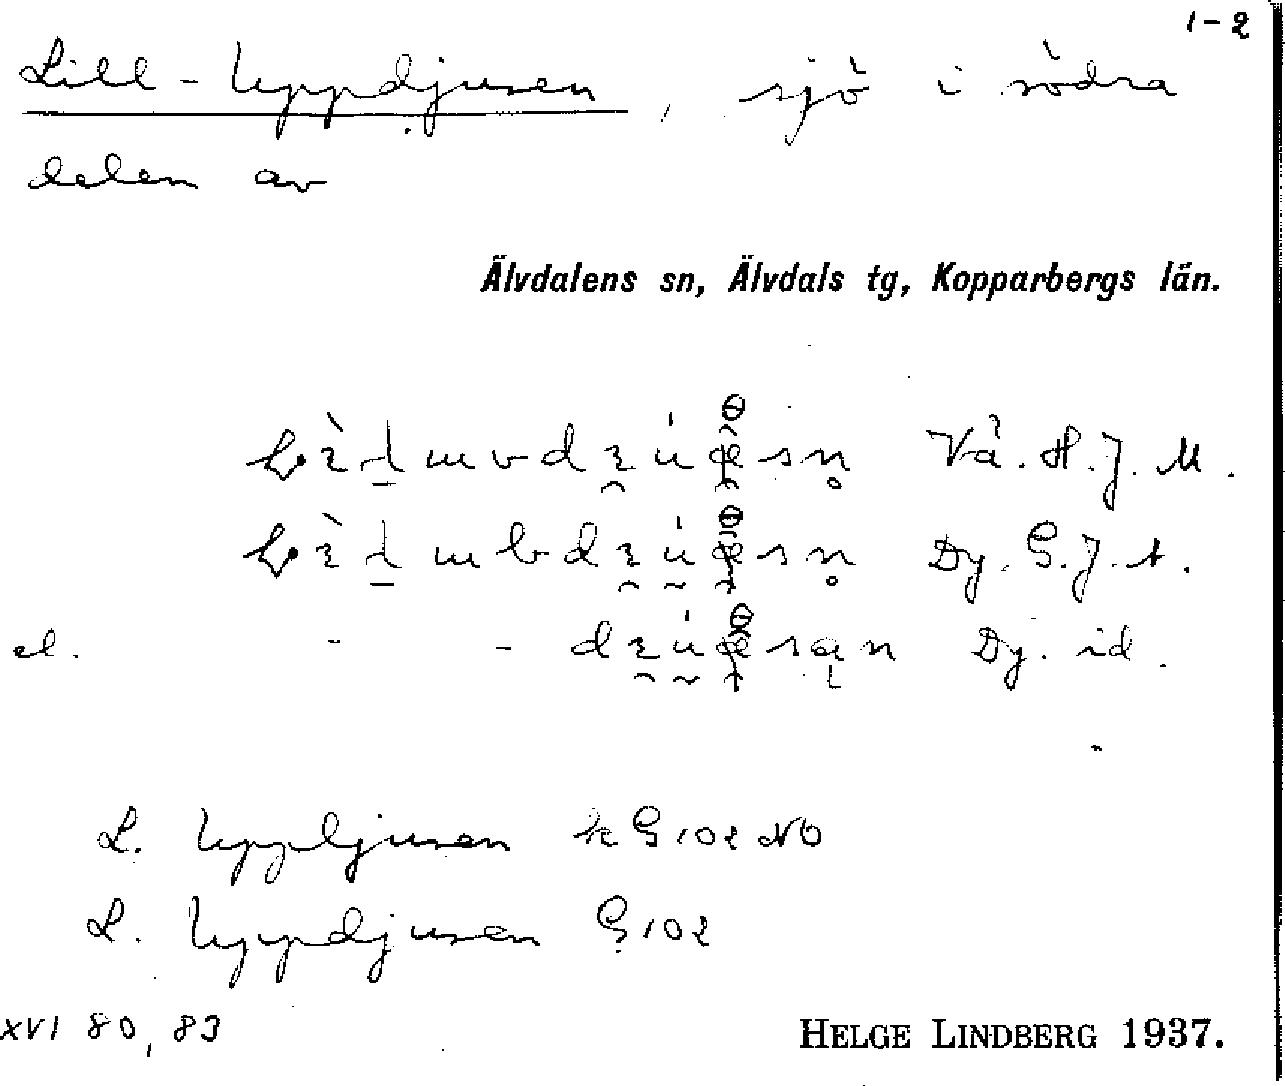 1-2
Lill-Uppdjusen, sjö i södra
delen av
Älvdalens sn, Älvdals tg, Kopparbergs län.
Vå. H. J. M.
Dy. G. J. A.
el. - - Dy. id.
L. Uppljusen kG 102 NO
L. Uppdjusen G 102
XVI 80, 83
HELGE LINDBERG 1937.